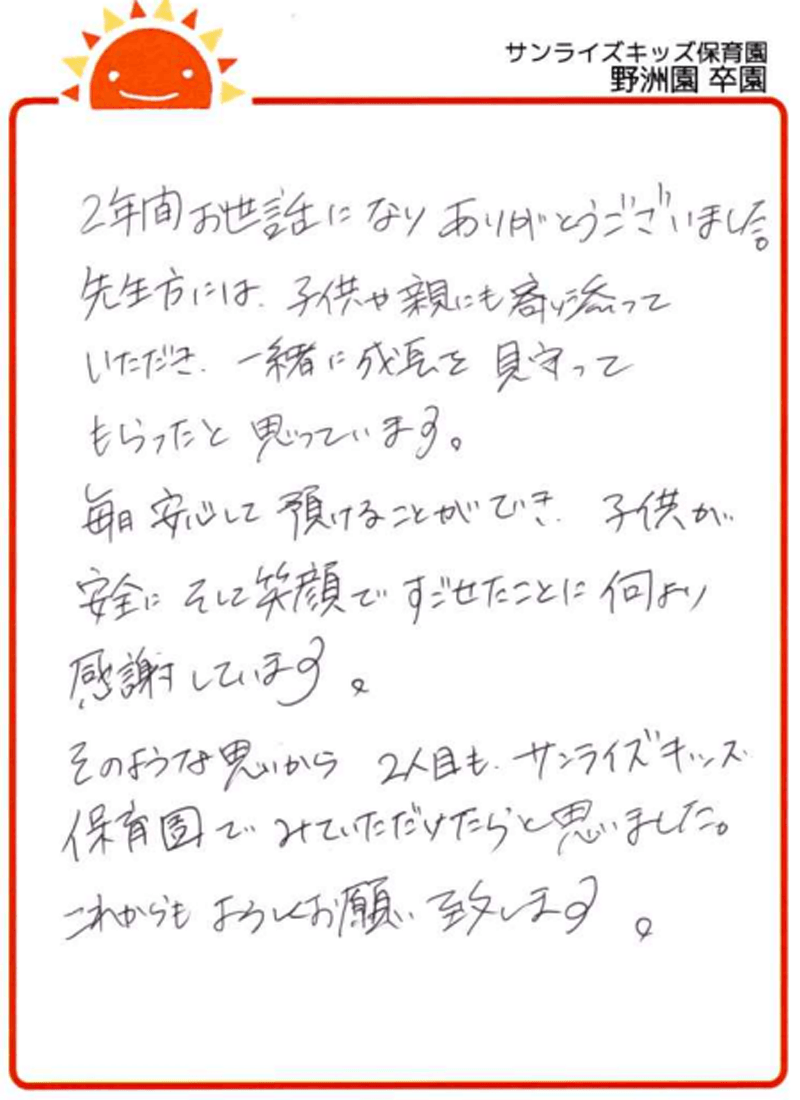 サンライズキッズ保育園
野洲園 卒園
2年間お世話になり ありがとうございました。
先生方には、子供や親にも寄り添って
いただき、一緒に成長を見守って
もらったと思っています。
毎日安心して預けることができ、子供が
安全に そして笑顔で すごせたことに 何より
感謝しています。
そのような思いから 2人目も、サンライズキッズ
保育園で みていただけたらと思いました。
これからも よろしくお願い致します。